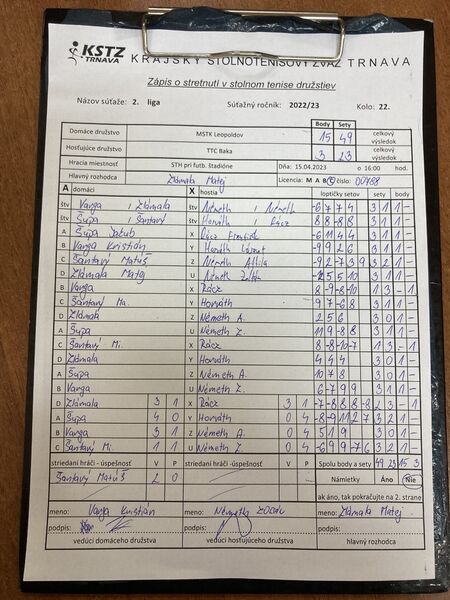 KSTZ TRNAVA KRAJSKÝ STOLNOTENISOVÝ ZVÄZ TRNAVA
Zápis o stretnutí v stolnom tenise družstiev
Názov súťaže: 2. liga Súťažný ročník: 2022/23 Kolo: 22.
Body Sety
Domáce družstvo MSTK Leopoldov 15 49 celkový výsledok
Hosťujúce družstvo TTC Baka 3 23 celkový výsledok
Hracia miestnosť STH pri futb. štadióne Dňa: 15.04.2023 o 16:00 hod.
Hlavný rozhodca Zlámala Matej Licencia: M A B C číslo: 00488
A domáci X hostia loptičky setov sety body
štv Varga / Zlámala štv Németh / Németh -6 7 7 4 3 1 1 -
štv Šupa / Šantavý štv Horváth / Rácz 8 8 -8 8 3 1 1 -
A Šupa Jakub X Rácz František -6 11 4 4 3 1 1 -
B Varga Kristián Y Horváth -9 9 2 6 3 1 1 -
C Šantavý Matúš Z Németh Attila -9 2 -7 3 9 3 2 1 -
D Zlámala Matej U Németh Zoltán 5 5 10 3 1 1 -
B Varga X Rácz 8 -9 -8 -10 1 3 - 1
C Šantavý Ma. Y Horváth 9 7 -6 8 3 1 1 -
D Zlámala Z Németh A. 2 5 6 3 0 1 -
A Šupa U Németh Z. 11 9 -8 8 3 1 1 -
C Šantavý Mi. X Rácz 8 -8 -10 -7 1 3 - 1
D Zlámala Y Horváth 4 4 4 3 0 1 -
A Šupa Z Németh A. 10 7 8 3 0 1 -
B Varga U Németh Z. 6 -7 9 9 3 1 1 -
D Zlámala 3 1 X Rácz 3 1 -7 -8 8 8 -8 2 3 - 1
A Šupa 4 0 Y Horváth 0 4 -8 -9 11 2 7 3 2 1 -
B Varga 3 1 Z Németh A. 0 4 5 1 9 3 0 1 -
C Šantavý Mi. 1 1 U Németh Z. 0 4 -6 9 9 -7 6 3 2 1 -
striedaní hráči - úspešnosť V P striedaní hráči - úspešnosť V P Spolu body a sety 49 23 15 3
Šantavý Matúš 2 0 Námietky Áno Nie
ak áno, tak pokračujte na 2. strane
meno: Varga Kristián meno: Németh Zoltán meno: Zlámala Matej
podpis: podpis: podpis:
vedúci domáceho družstva vedúci hosťujúceho družstva hlavný rozhodca